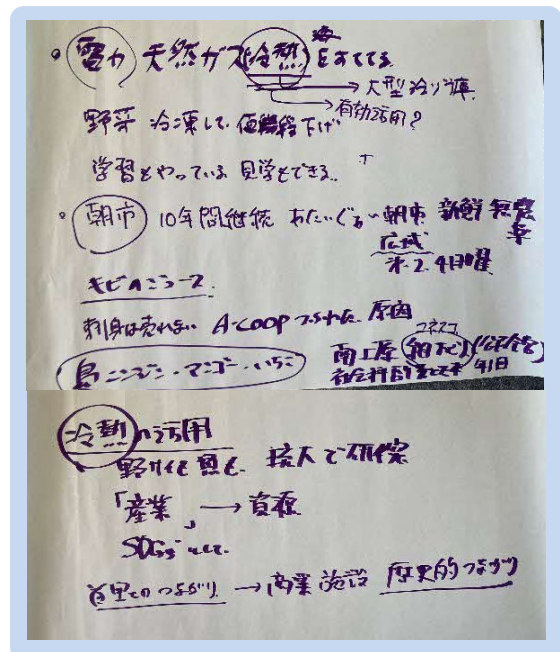 ・電力 天然ガス(冷熱) 海にすててる
→ 大型冷凍庫
→ 有効活用?
野菜 冷凍して 価格下げ
学習もやっている 見学もできる。
・朝市 10年間継続 あたいぐゎー朝市 新鮮 無農薬
広域
第2.4日曜
キビのジュース
刺身は売れない A-COOP つぶれた 原因
島ニンジン・マンゴー・いちご
商工会
冷熱の活用
野サイも魚も、琉大で研究
「産業」→ 資源
SDGsとして
首里とのつながり → 商業施設 歴史的つながり